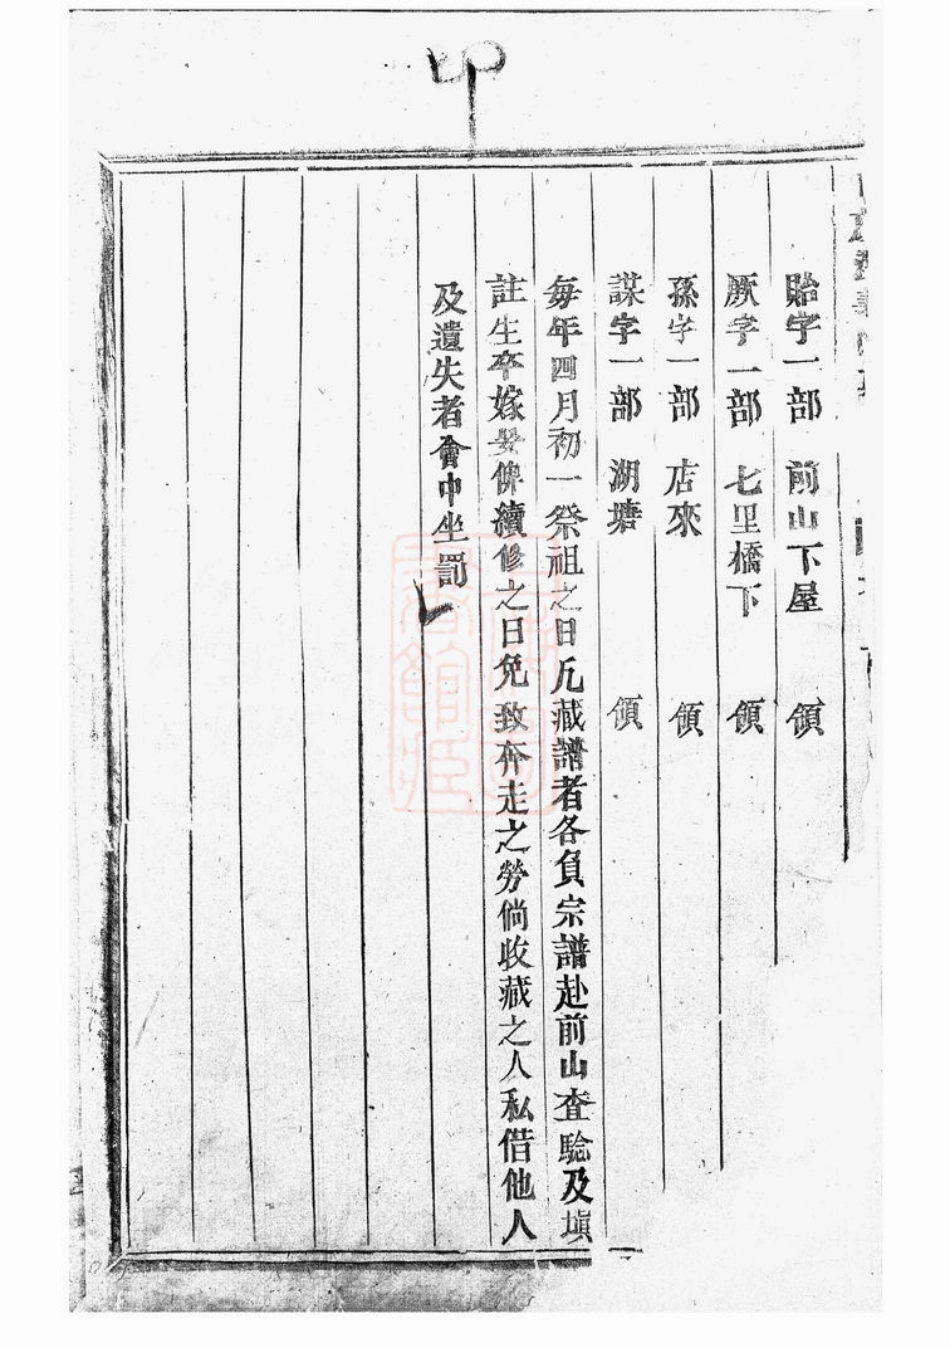 貽字一部　前山下屋　領
厥字一部　七里橋下　領
孫字一部　店來　領
謀字一部　湖塘　領
每年四月初一祭祖之日凡藏譜者各負宗譜赴前山查驗及塡
註生卒嫁娶俾續修之日免致奔走之勞倘收藏之人私借他人
及遺失者會中坐罰